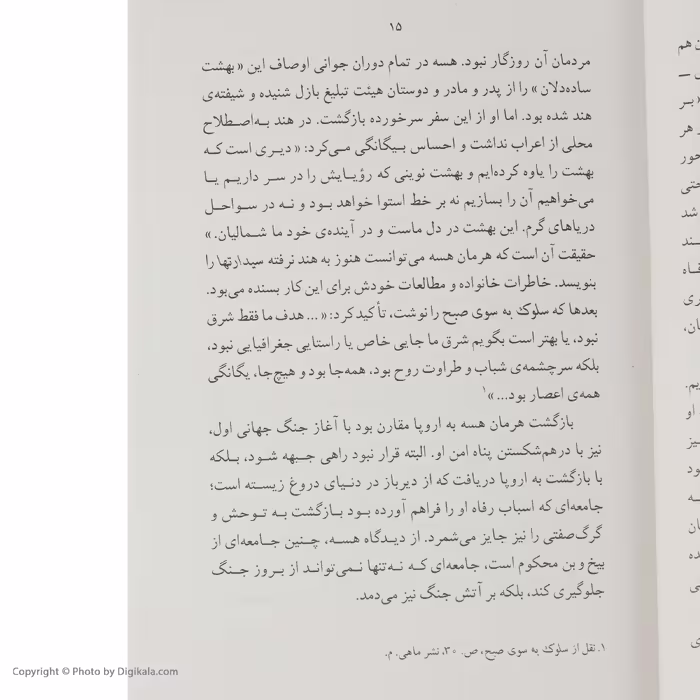 ۱۵
مردمان آن روزگار نبود. هسه در تمام دوران جوانی اوصاف این «بهشت
ساده‌دلان» را از پدر و مادر و دوستان هیئت تبلیغ بازل شنیده و شیفته‌ی
هند شده بود. اما او از این سفر سرخورده بازگشت. در هند به‌اصطلاح
محلی از اعراب نداشت و احساس بیگانگی می‌کرد: «دیری است که
بهشت را یاوه کرده‌ایم و بهشت نوینی که رؤیایش را در سر داریم یا
می‌خواهیم آن را بسازیم نه بر خط استوا خواهد بود و نه در سواحل
دریاهای گرم. این بهشت در دل ماست و در آینده‌ی خود ما شمالیان.»
حقیقت آن است که هرمان هسه می‌توانست هنوز به هند نرفته سیدارتها را
بنویسد. خاطرات خانواده و مطالعات خودش برای این کار بسنده می‌بود.
بعدها که سلوک به سوی صبح را نوشت، تأکید کرد: «... هدف ما فقط شرق
نبود، یا بهتر است بگویم شرق ما جایی خاص یا راستایی جغرافیایی نبود،
بلکه سرچشمه‌ی شباب و طراوت روح بود، همه‌جا بود و هیچ‌جا، یگانگی
همه‌ی اعصار بود...»۱
بازگشت هرمان هسه به اروپا مقارن بود با آغاز جنگ جهانی اول،
نیز با درهم‌شکستن پناه امن او. البته قرار نبود راهی جبهه شود، بلکه
با بازگشت به اروپا دریافت که از دیرباز در دنیای دروغ زیسته است؛
جامعه‌ای که اسباب رفاه او را فراهم آورده بود بازگشت به توحش و
گرگ‌صفتی را نیز جایز می‌شمرد. از دیدگاه هسه، چنین جامعه‌ای از
بیخ و بن محکوم است، جامعه‌ای که نه‌تنها نمی‌تواند از بروز جنگ
جلوگیری کند، بلکه بر آتش جنگ نیز می‌دمد.
۱. نقل از سلوک به سوی صبح، ص. ۳۰، نشر ماهی. م.
Copyright © Photo by Digikala.com